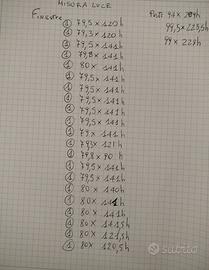 MISURA LUCE
Finestre
① 79,5 x 120 h
① 79,3 x 120 h
① 79,5 x 141 h
① 79,8 x 141 h
① 80 x 141 h
① 79,5 x 141 h
① 79,5 x 141 h
① 79,5 x 141 h
① 79,5 x 141 h
① 79 x 141 h
① 79,3 x 121 h
① 79,8 x 90 h
① 79,5 x 141 h
① 79,5 x 141 h
① 80 x 140 h
① 80 x 141 h
① 80 x 141 h
① 80 x 141,5 h
① 80 x 121,5 h
① 80 x 120,5 h
99,5 x 228,5 h
99 x 228 h
subito